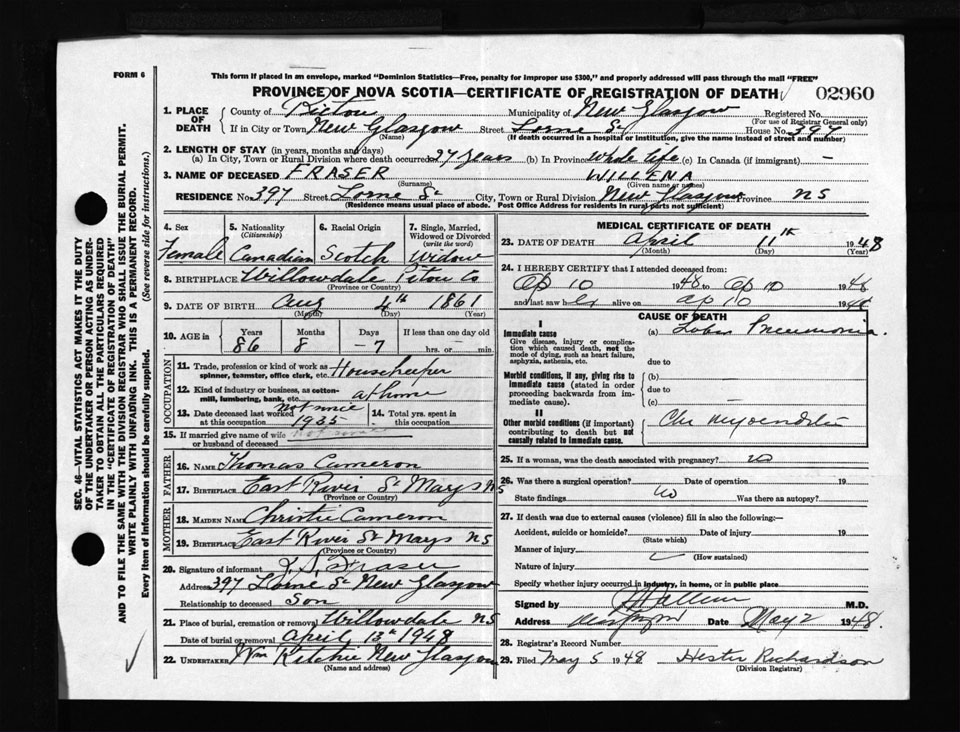 FORM 6
This form if placed in an envelope, marked "Dominion Statistics—Free, penalty for improper use $300," and properly addressed will pass through the mail "FREE"
PROVINCE OF NOVA SCOTIA—CERTIFICATE OF REGISTRATION OF DEATH 02960
1. PLACE OF DEATH County of Pictou Municipality of New Glasgow Registered No.
(For use of Registrar General only)
If in City or Town New Glasgow Street Lorne St House No. 397
(Name) (If death occurred in a hospital or institution, give the name instead of street and number)
2. LENGTH OF STAY (in years, months and days)
(a) In City, Town or Rural Division where death occurred 27 years (b) In Province Whole life (c) In Canada (if immigrant) —
3. NAME OF DECEASED FRASER WILLENA
(Surname) (Given name or names)
RESIDENCE No. 397 Street Lorne St City, Town or Rural Division New Glasgow Province NS
(Residence means usual place of abode. Post Office Address for residents in rural parts not sufficient)
4. Sex 5. Nationality (Citizenship) 6. Racial Origin 7. Single, Married, Widowed or Divorced (write the word)
Female Canadian Scotch Widow
8. BIRTHPLACE Willowdale Pitou Co
(Province or Country)
9. DATE OF BIRTH Aug 4th 1861
(Month) (Day) (Year)
10. AGE in Years Months Days If less than one day
86 8 -7 hrs. or min.
OCCUPATION
11. Trade, profession or kind of work as spinner, teamster, office clerk, etc. Housekeeper
12. Kind of industry or business, as cotton-mill, lumbering, bank, etc. at home
13. Date deceased last worked at this occupation not since 1935 14. Total yrs. spent in this occupation
15. If married give name of wife or husband of deceased
FATHER
16. NAME Thomas Cameron
17. BIRTHPLACE East River St Marys NS
(Province or Country)
MOTHER
18. MAIDEN NAME Christie Cameron
19. BIRTHPLACE East River St Marys NS
(Province or Country)
20. Signature of informant Fraser
Address 397 Lorne St New Glasgow
Relationship to deceased Son
21. Place of burial, cremation or removal Willowdale NS
Date of burial or removal April 13th 1948
22. UNDERTAKER Wm Ritchie New Glasgow
(Name and address)
MEDICAL CERTIFICATE OF DEATH
23. DATE OF DEATH April 11th 1948
(Month) (Day) (Year)
24. I HEREBY CERTIFY that I attended deceased from:
Ap 10 1948 to Ap 10 1948
and last saw her alive on ap 10 1948
CAUSE OF DEATH
I
Immediate cause (a) Lobar Pneumonia
Give disease, injury or complication which caused death, not the mode of dying, such as heart failure, asphyxia, asthenia, etc.
due to
Morbid conditions, if any, giving rise to immediate cause (stated in order proceeding backwards from immediate cause).
(b)
due to
(c)
II
Other morbid conditions (if important) contributing to death but not causally related to immediate cause.
25. If a woman, was the death associated with pregnancy? no
26. Was there a surgical operation? Date of operation 19
State findings no Was there an autopsy?
27. If death was due to external causes (violence) fill in also the following:—
Accident, suicide or homicide? Date of injury 19
(State which)
Manner of injury
(How sustained)
Nature of injury
Specify whether injury occurred in industry, in home, or in public place
Signed by M.D.
Address Date May 2 1948.
28. Registrar's Record Number
29. Filed May 5 1948 Hester Richardson
(Division Registrar)
SEC. 46—VITAL STATISTICS ACT MAKES IT THE DUTY
OF THE UNDERTAKER OR PERSON ACTING AS UNDER-
TAKER TO OBTAIN ALL THE PARTICULARS REQUIRED
IN THE "CERTIFICATE OF REGISTRATION OF DEATH"
AND TO FILE THE SAME WITH THE DIVISION REGISTRAR WHO SHALL ISSUE THE BURIAL PERMIT.
WRITE PLAINLY WITH UNFADING INK. THIS IS A PERMANENT RECORD.
Every item of information should be carefully supplied. (See reverse side for instructions.)